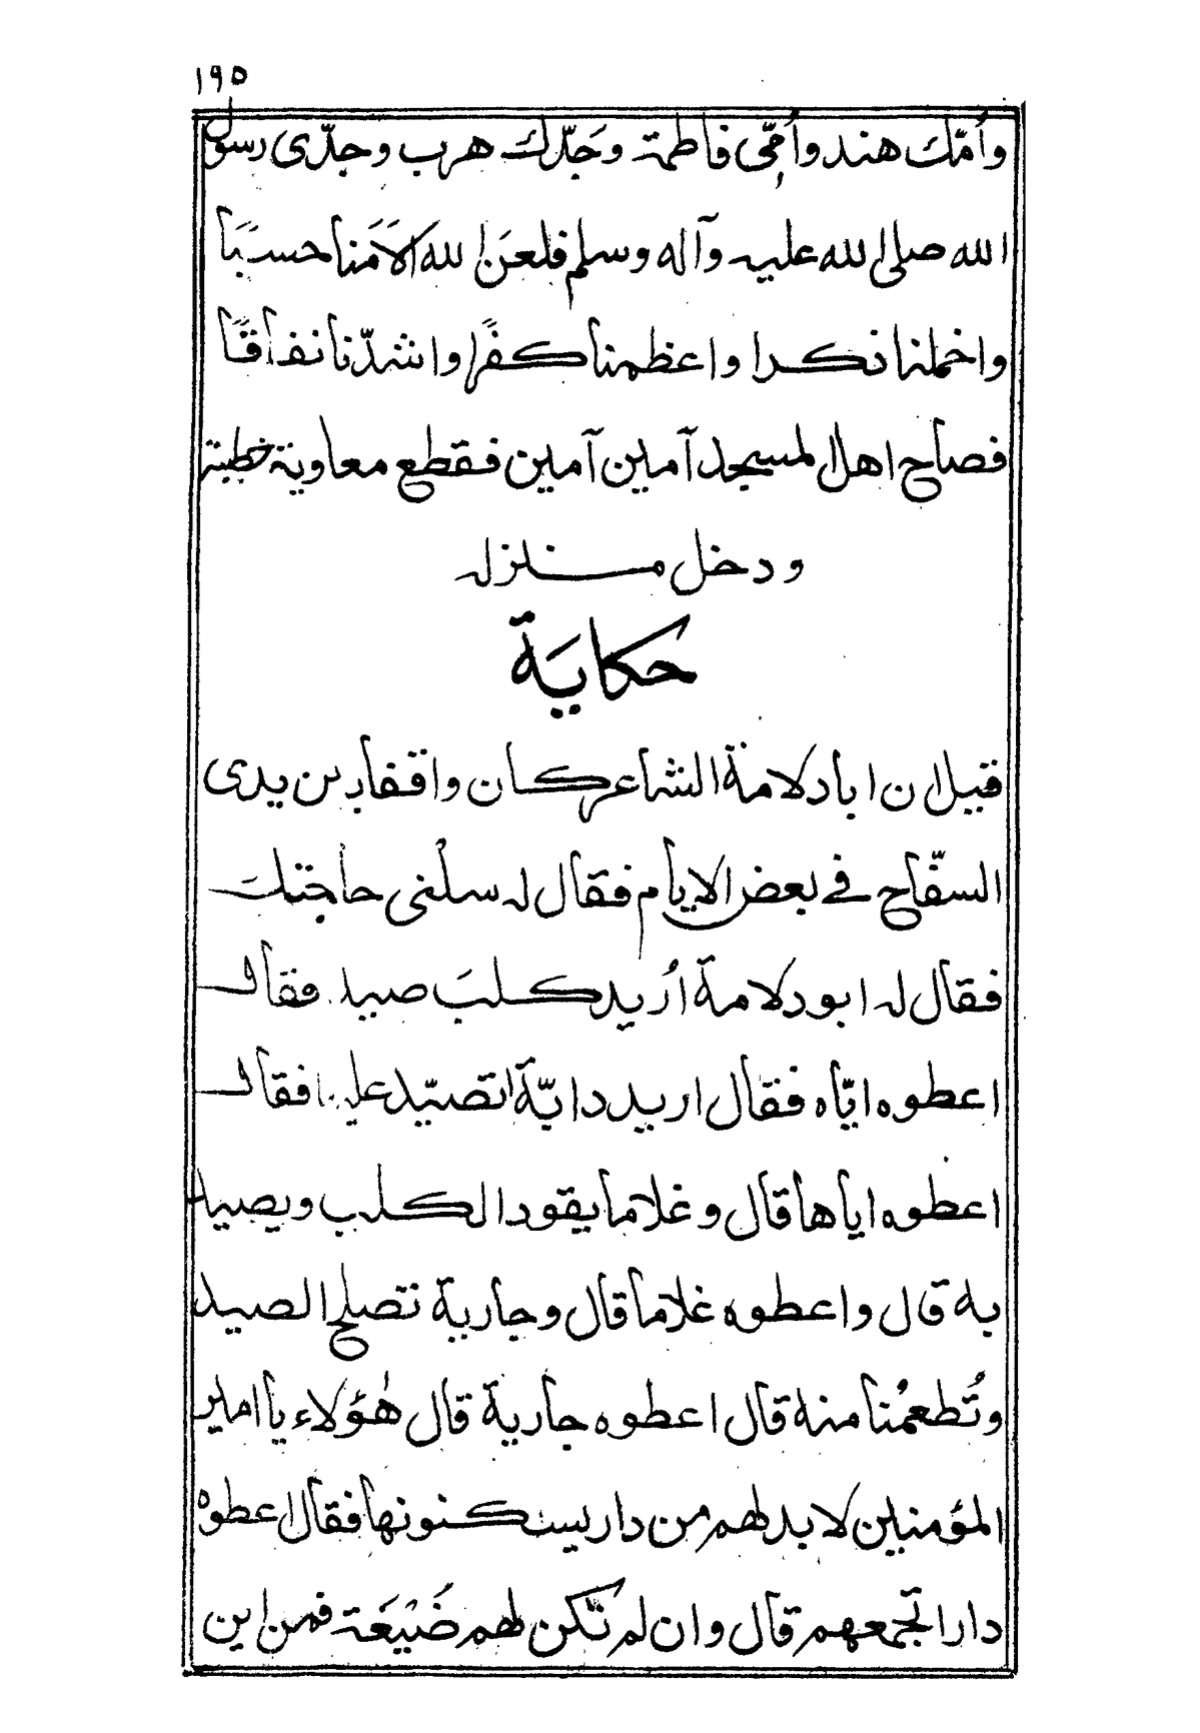 ١٩٥
وأُمّك هند وأُمِّى فاطمة وجَدّك هرب وجدّى رسول
الله صلى الله عليه وآله وسلم فلعن الله الأمنا حسبًا
واخملنا نكرا واعظمنا كفرًا واشدّنا نفاقًا
فصاح اهل المسجد آمين آمين فقطع معاوية خطبته
ودخل منزله
حكاية
قيل ان ابا دلامة الشاعر كان واقفا بين يدى
السفّاح في بعض الايام فقال له سلنى حاجتك
فقال له ابو دلامة اُريد كلبَ صيد فقال
اعطوه ايّاه فقال اريد دابّة اتصيّد عليها فقال
اعطوه اياها قال وغلاما يقود الكلب ويصيد
به قال واعطوه غلاما قال وجارية تصلح الصيد
وتُطعمُنا منه قال اعطوه جارية قال هٰؤلاء يا امير
المؤمنين لا بد لهم من دار يسكنونها فقال اعطوه
دارا تجمعهم قال وان لم تكن لهم ضَيْعَة فمن اين